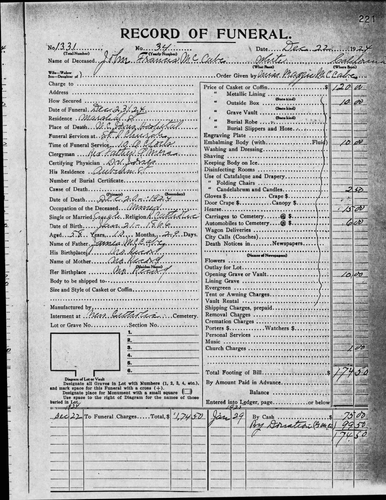 221
RECORD OF FUNERAL.
No. 1331 No. 34 Date, Dec 22 1924
(Total Number) (Yearly Number)
Name of Deceased, John Francis McCabe White California
(What Race) (Where Born)
Order Given by
Charge to
Address
How Secured
Date of Funeral
Residence
Place of Death
Funeral Services at
Time of Funeral Services 10
Clergyman
Certifying Physician
His Residence Auburn
Number of Burial Certificate
Cause of Death
Date of Death Dec. 20, 1924
Occupation of the Deceased
Single or Married Single Religion Catholic
Date of Birth
Aged
Name of Father James McCabe
His Birthplace No Record
Name of Mother No Record
(Maiden Name)
Her Birthplace No Record
Body to be shipped to
Size and Style of Casket or Coffin
Manufactured by
Interment at New Catholic Cemetery
Lot or Grave No. Section No.
1.
2.
3.
4.
5.
6.
7.
8.
Diagram of Lot or Vault
Designate all Graves in Lot with Numbers (1, 2, 3, 4, etc.),
and mark space for this Funeral with a cross (+).
Designate place for Monument with a small square
Use space to the right of Diagram for the names of those
Buried in Lot.
Price of Casket or Coffin $ 120 00
" Metallic Lining
(State kind)
" Outside Box 10 00
(State kind)
" Grave Vault
(State kind)
" Burial Robe
" Burial Slippers and Hose
Engraving Plate
Embalming Body (with Fluid) 10 00
Washing and Dressing
Shaving
Keeping Body on Ice
Disinfecting Rooms
Use of Catafalque and Drapery
" Folding Chairs
" Candelabrum and Candles 2 50
Gloves $ Crape $
Door Crape $ Canopy $
Hearse 15 00
Carriages to Cemetery @ $
Automobiles to Cemetery @ $ 6 00
Wagon Deliveries
City Calls (Coaches)
Death Notices in Newspapers
(Names of Newspapers)
Flowers
Outlay for Lot
Opening Grave or Vault 10 00
Lining Grave
Evergreen
Tent or Awning Charges
Vault Rental
Shipping Charges, prepaid
Removal Charges
Cremation Charges
Porters $ Watchers $
Personal Services
Music
Church Charges 1 00
Total Footing of Bill $ 174 50
By Amount Paid in Advance
Balance
Entered into Ledger, page or below.
Dec 22 To Funeral Charges Total, $ 174 50 Jan 29 By Cash $ 75 00
By Donation 99 50
174 50